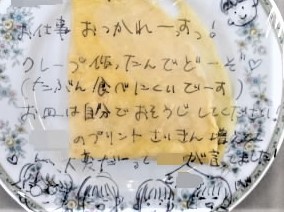 お仕事 おっかれーすっ！
クレープ作ったんでどーぞ♡
(たぶん食べにくいでーす)
お皿は自分でおそうじしてください！
のプリント
大変だ が言ってました！